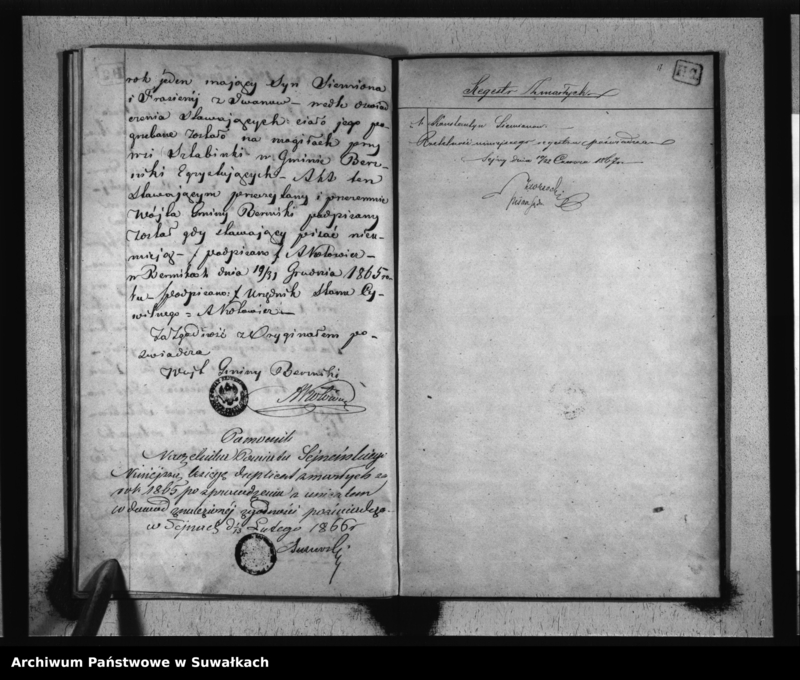 rok jeden mający syn Siemiona
i
z Iwanow – wedle oświad
czenia stawających: ciało jego po
grzebane zostało na mogiłach przy
wsi Szlabinki w Gminie Berż
niki Egzystujących – Akt ten
stawającym przeczytany i przezemnie
Wójta Gminy Berżniki podpisany
został gdy stawający pisać nieu-
mieją – / podpisano / A Kołowicz –
w Berżnikach dnia 19/31 Grudnia 1865 ro
ku – podpisano / Urzędnik Stanu Cy-
wilnego = A Kołowicz –
Za Zgodność z Oryginałem po-
świadcza
Wójt Gminy Berżniki
A Kołowicz
Pomocnik
Naczelnika Powiatu Sejneńskiego
Niniejszą księgę duplicat zmarłych za
rok 1865, po sprawdzeniu
w dowód znalezionej zgodności poświadcza.
w Sejnach d. Lutego 1866 r
112
Regestr Zmarłych
1. Konstantyn Siemionow
Rzetelność niniejszego regestru poświadcza
Sejny dnia Czerwca 1867 r
Archiwum Państwowe w Suwałkach